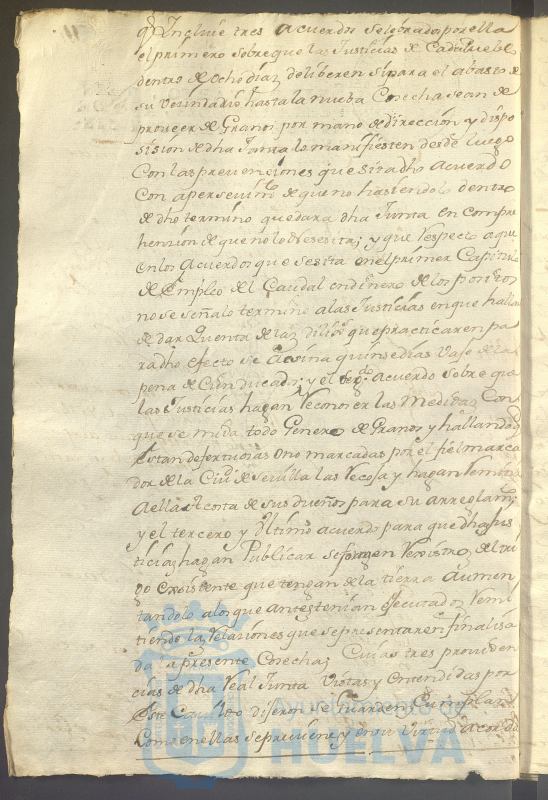 qe. Incluie tres acuerdos selebrados por ella
el primero sobre que las Justicias de Cada Pueblo
dentro de ocho dias deliberen si para el abasto de
su Vesindario hasta la nueba Cosecha sean de
proveer de Granos por mano de direccion y dispo
sision de dha Junta lo manifiesten desde luego
Con las prevensiones que sita dho acuerdo
Con apersevimto de que no hasiendolo dentro
de dho termino quedara dha Junta en compre
hension de que no lo Nesesita; y que Respecto a que
en los acuerdos que se sita en el primer Capitulo
de Empleo del Caudal en dinero de los positos
no se señalo termino a las Justicias en que hallan
de dar Quenta de las dilixs que practicaren pa
ra dho efecto se asina quinse dias vajo de la
pena de Cien ducados; y el segdo acuerdo sobre que
las Justicias hagan Reconoser las Medidas Con
que se mida todo Genero de Granos y hallandose
estan defectuosas o no marcadas por el fiel marca
dor de la Ciud de sevilla las Recoja y hagan Remitir
a ella a Costa de sus dueños para su arreglamto
y el tercero y Ultimo acuerdo para que dhas Jus
ticias hagan Publicar se formen Rexistros del tri
go existente que tengan de la tierra aumen
tandolo a los que antes tenian efecutados Remi
tiendo las Relaciones que se presentaren finalisa
da la presente Cosecha; Cuias tres providen
cias de dha Real Junta Vistas y Entendidas por
Este Cavildo dijeron se Guarden y Cumplan
Como en ellas se previene y en su Virtud acordo
HUELVA